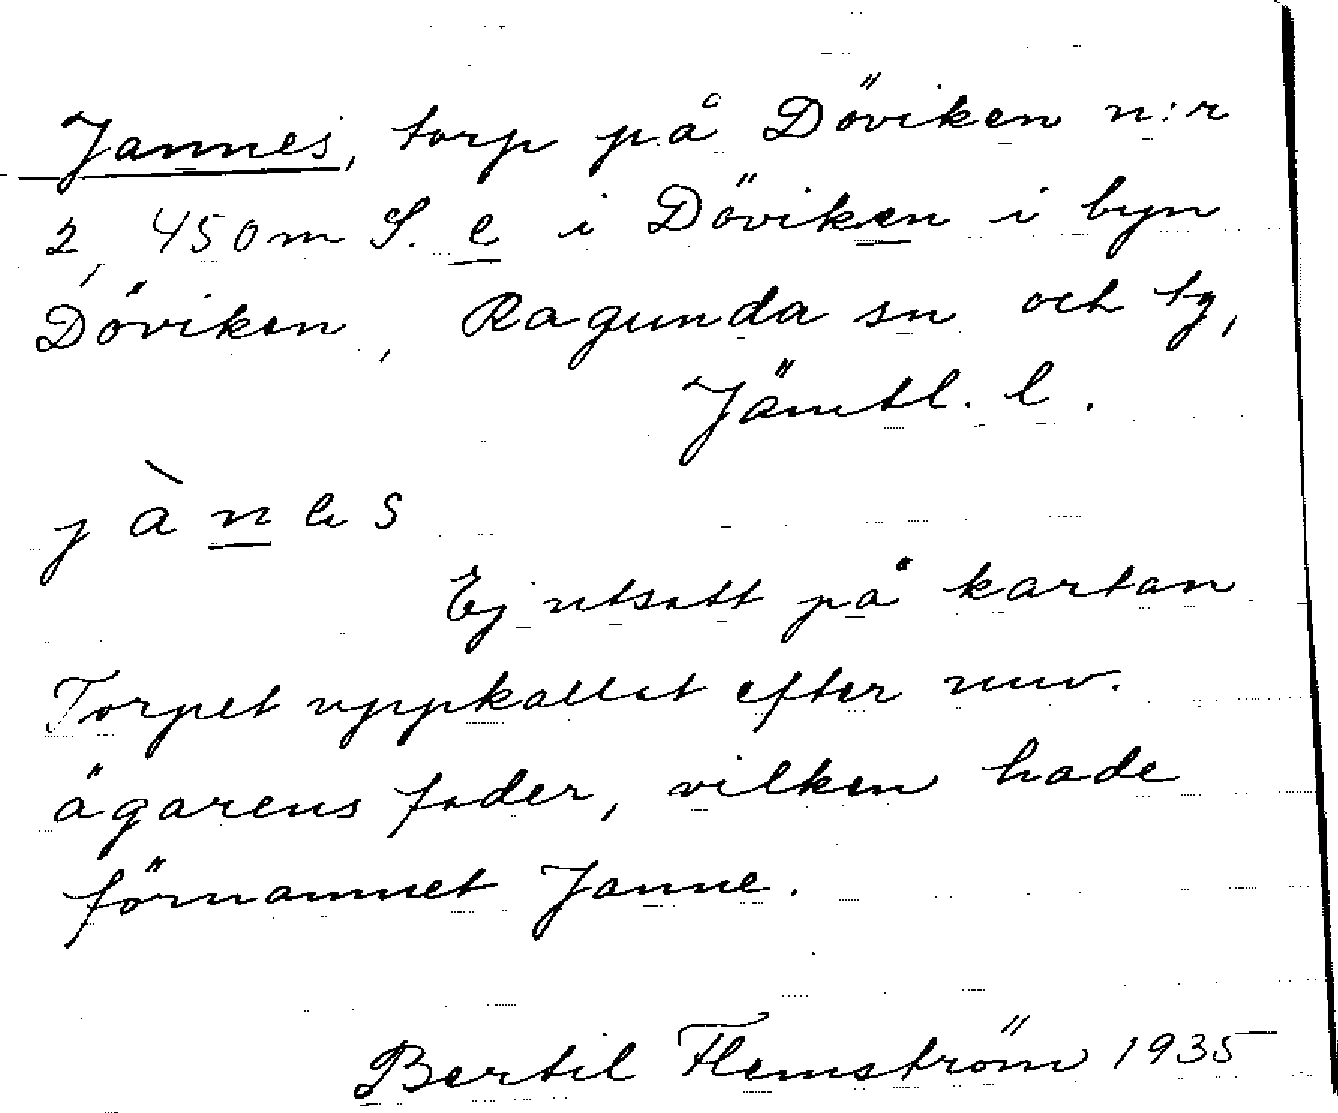 Jannes, torp på Döviken n:r
2, 450 m S. e i Döviken i byn
Döviken, Ragunda sn och tg,
Jämtl. l.
jàn e s
Ej utsatt på kartan
Torpet uppkallat efter nuv.
ägarens fader, vilken hade
förnamnet Janne.
Bertil Flemström 1935